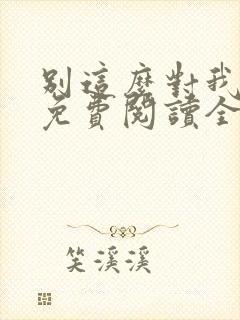 別這麼對我
免費閱讀全
笑溪溪